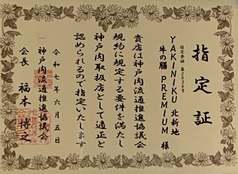 指定証
YAKINIKU 北新地
牛の膳 PREMIUM 様
貴店は神戸肉流通推進協議会
規約に規定する要件を満たし
神戸肉取扱店として適正と
認められるので指定いたします
令和七年六月五日
神戸肉流通推進協議会
会長 福本博之